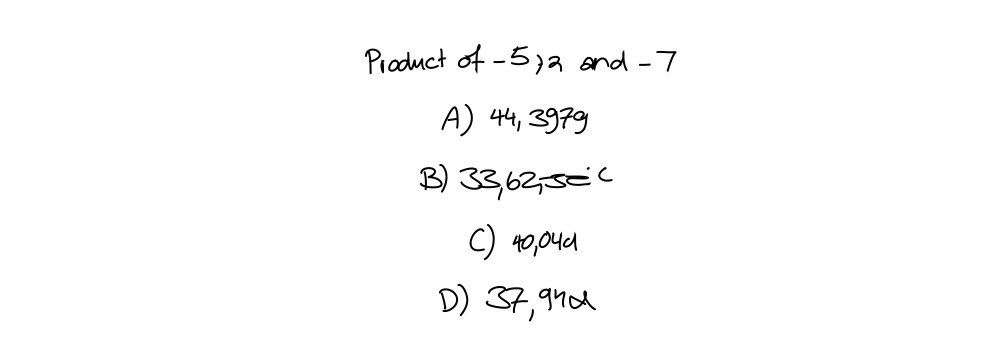 Product of -5,2 and -7
A) 44,3979
B) 33,62, c
C) 40,04d
D) 37,94d